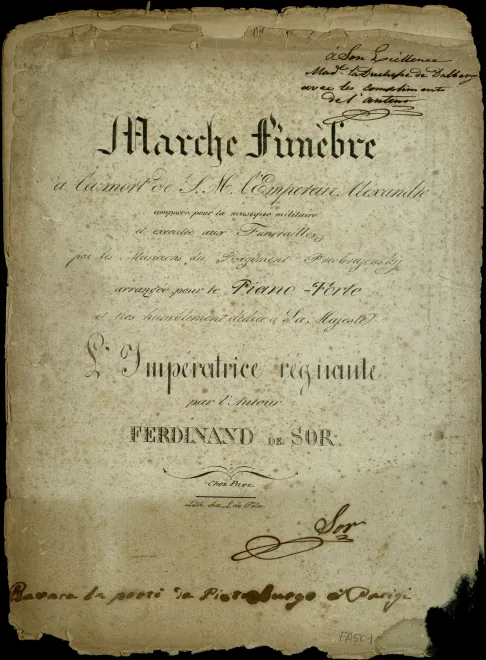 à Son Excellence
Mad. la Duchesse de Dalberg
avec les compliments
de l'auteur
Marche Funèbre
à la mort de S. M. l'Empereur Alexandre
composée pour la musique militaire
et executée aux Funerailles,
par les Musiciens du Régiment Preobrajensky
arrangée pour le Piano-Forte
et très humblement dédiée à Sa Majesté
L'Impératrice régnante
par l'Auteur
FERDINAND DE SOR.
Chez Paez
Lith. chez J. de
Sor
la portò da Pietroburgo a Parigi
FA501